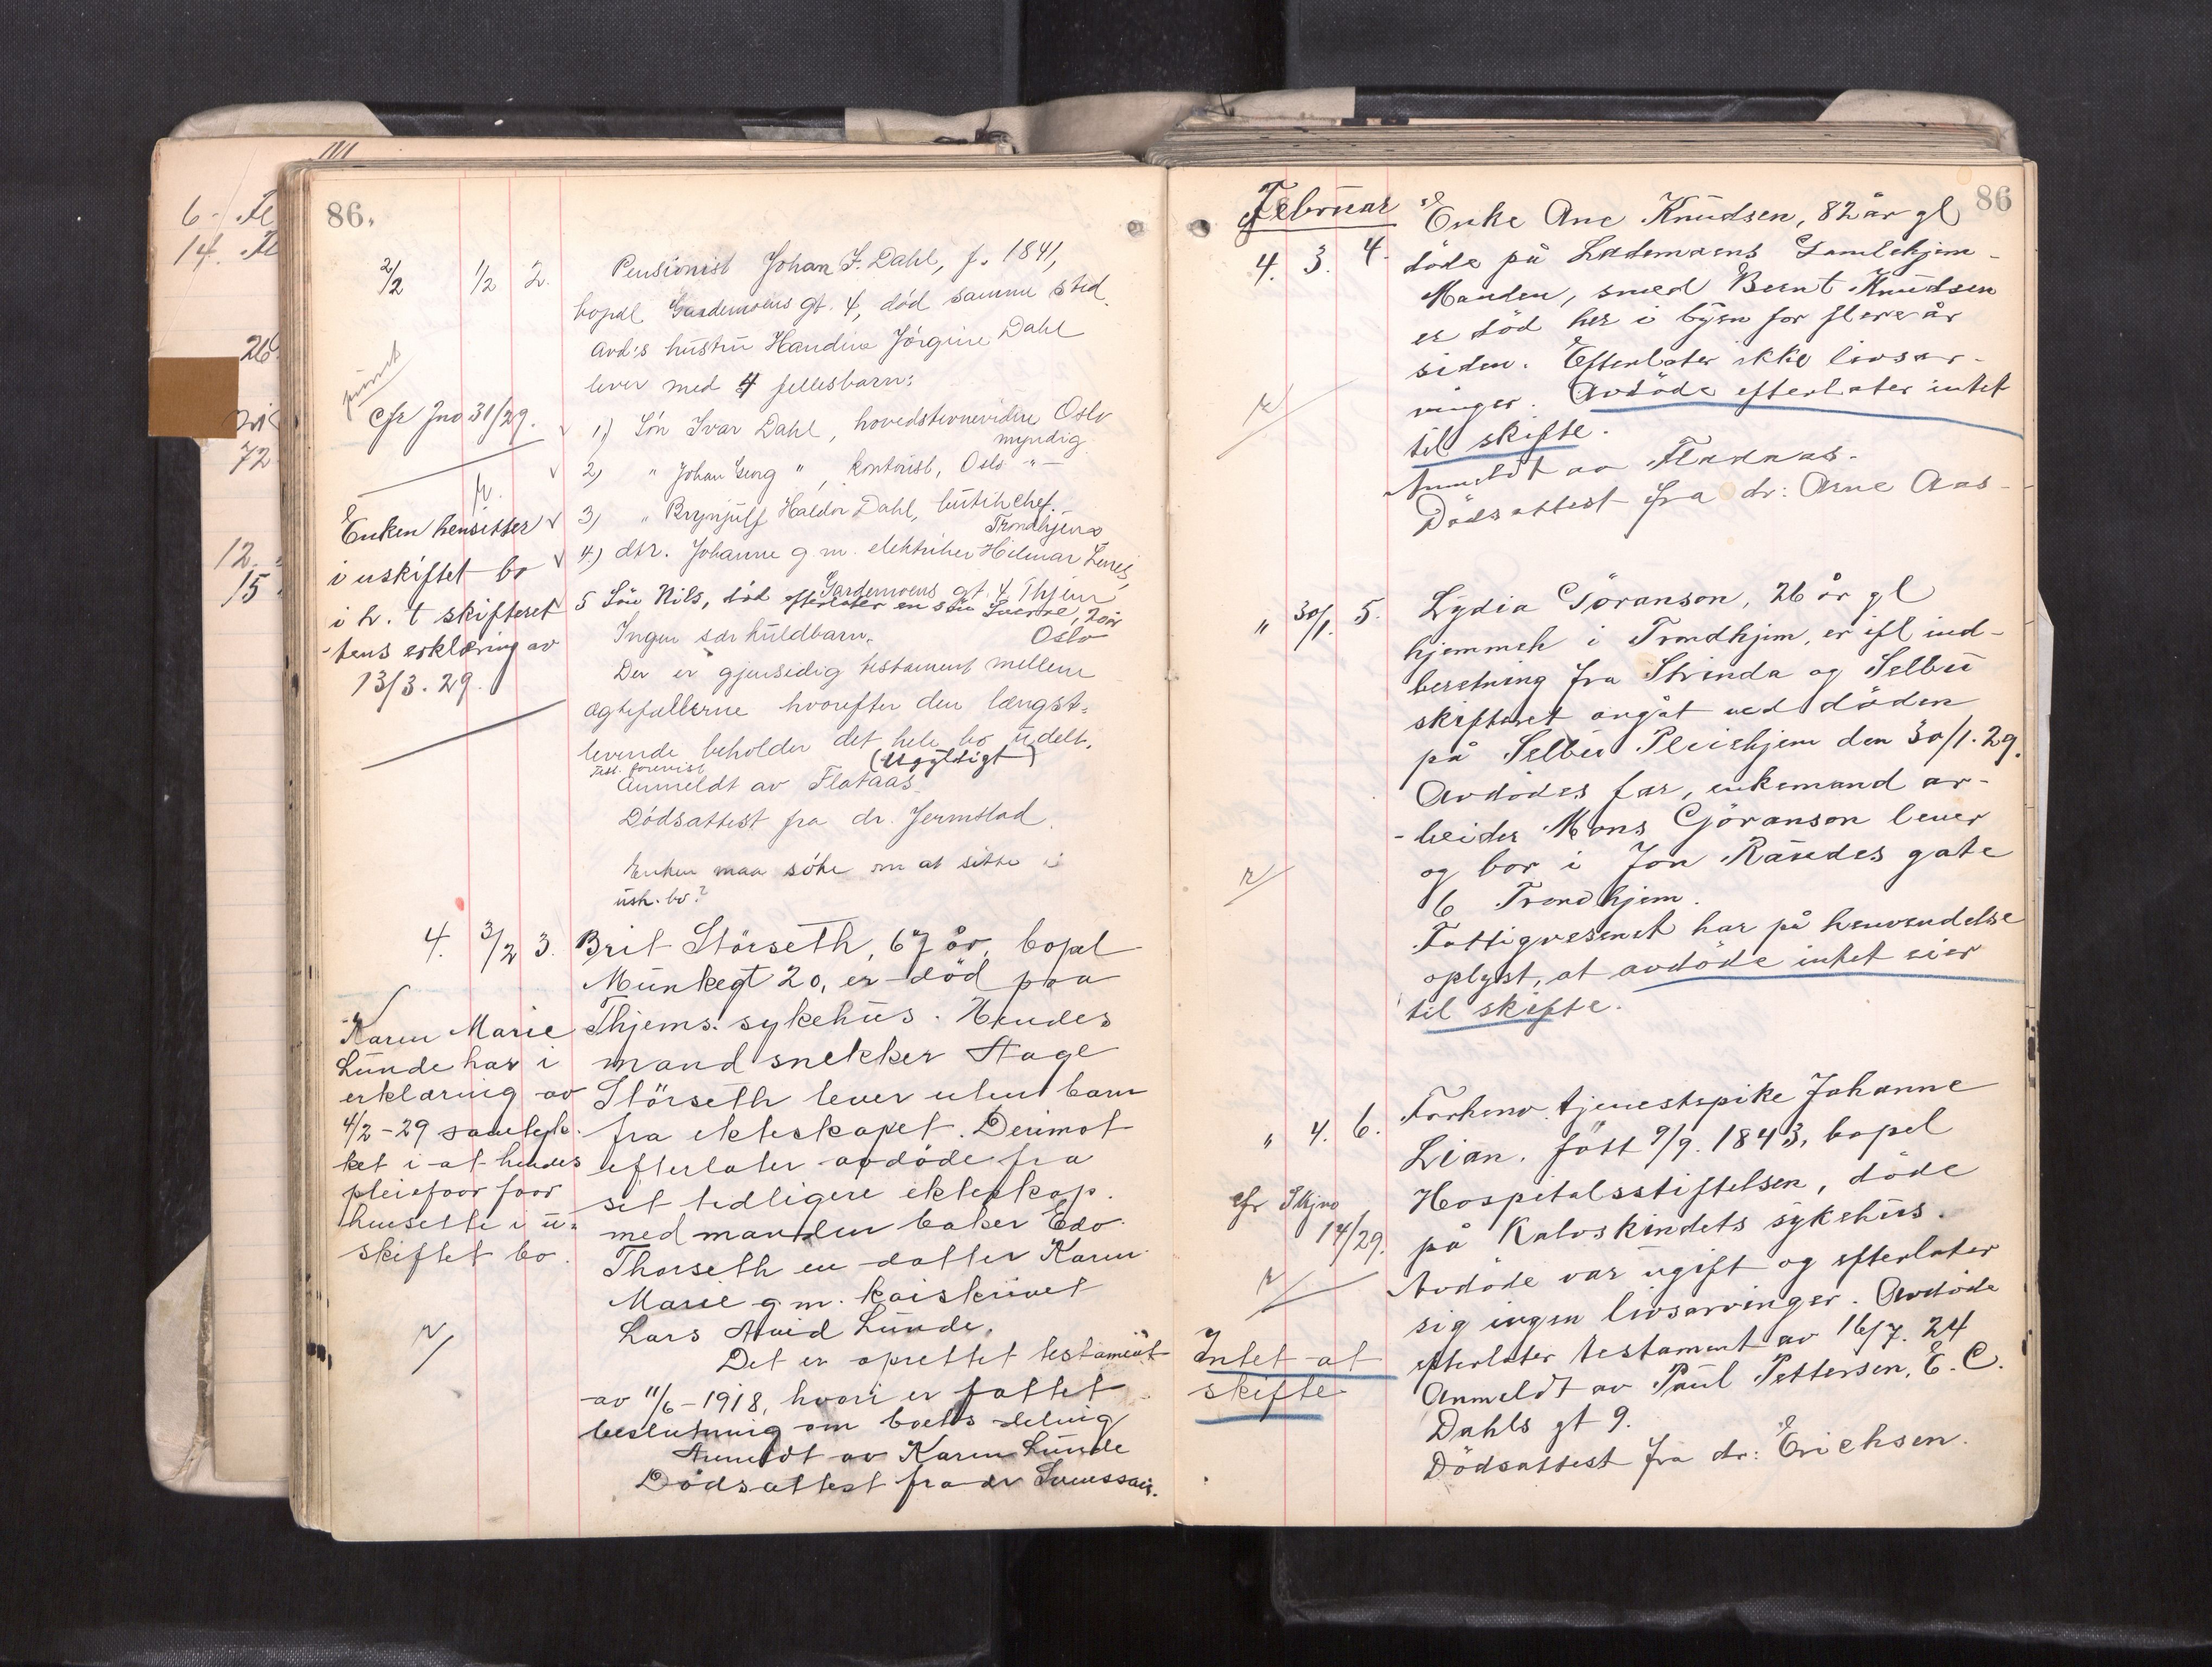 6 -
14.
26
72
12.
15
86.
2/2 1/2 2. Pensionist Johan F. Dahl, f. 1841,
bopæl Gardemoens gt. 4, død samme sted.
Avd:s hustru Handine Jörgine Dahl
lever med 4 fellesbarn:
cfr Jno 31/29.
1) Sön Ivar Dahl, hovedstevnevidne Oslo
myndig
2) " Johan Georg ", kontorist, Oslo -"-
3) " Brynjulf Haldor Dahl, butikchef.
Trondhjem
4) dtr. Johanne g. m. elektriker Hilmar
Gardemoens gt. 4 Thjem
5 Sön Nils, död efterlater en sön Sverre, 20 år
Oslo
Ingen særkuldbarn.
Der er gjensidig testament mellem
ægtefællerne hvorefter den længst-
levende beholder det hele bo udelt.
(Ugyldigt)
Test. forevist
Anmeldt av Flataas.
Dödsattest fra dr. Jermstad.
Enken maa söke om at sitte i
usk. bo?
r.
Enken hensitter
i uskiftet bo
i h. t skifteret
-tens erklæring av
13/3. 29.
4. 3/2 3. Brit Störseth, 67 år, bopel
Munkegt 20, er död paa
Thjems. sykehus. Hendes
mand snekker Aage
Störseth lever uten barn
fra ekteskapet. Derimot
efterlater avdöde fra
sit tidligere ekteskap.
med manden baker Edv.
Thorseth en datter Karen
Marie g. m. kaiskriver
Lars Arvid Lunde.
Det er oprettet testament
av 11/6 - 1918, hvori er fattet
beslutning om boets deling
Anmeldt av Karen Lunde
Dödsattest fra dr
Karen Marie
Lunde har i
erklæring av
4/2 - 29 samtyk-
ket i at hendes
pleiefaar faar
hensitte i u-
skiftet bo.
r/
Februar
86
4. 3. 4. Enke Ane Knudsen, 82 år gl
döde på Lademoens Gamlehjem -
Manden, smed Bernt Knudsen
er död her i byen for flere år
siden. Efterlater ikke livsar-
vinger. Avdöde efterlater intet
til skifte.
Anmeldt av Flataas.
Dödsattest fra dr: Arne Aas -
r/
" 30/1. 5. Lydia Göranson, 26 år gl
hjemmeh i Trondhjem, er ifl ind-
beretning fra Strinda og Selbu
skifteret avgåt ved döden
på Selbu Pleiehjem den 30/1. 29.
Avdödes far, enkemand ar-
-beider Mons Göranson lever
og bor i Jon Raudes gate
6 Trondhjem.
Fattigvesenet har på henvendelse
oplyst, at avdöde intet eier
til skifte.
r/
" 4. 6. Forhenv. tjenestepike Johanne
Lian. född 9/9. 1843, bopel
Hospitalsstiftelsen, döde
på Kalvskindets sykehus.
Avdöde var ugift og efterlater
sig ingen livsarvinger. Avdöde
efterlater testament av 16/7. 24
Anmeldt av Paul Pettersen, E. C.
Dahls gt 9.
Dödsattest fra dr: Erichsen.
cfr Skjno
14/29.
r/
Intet at
skifte